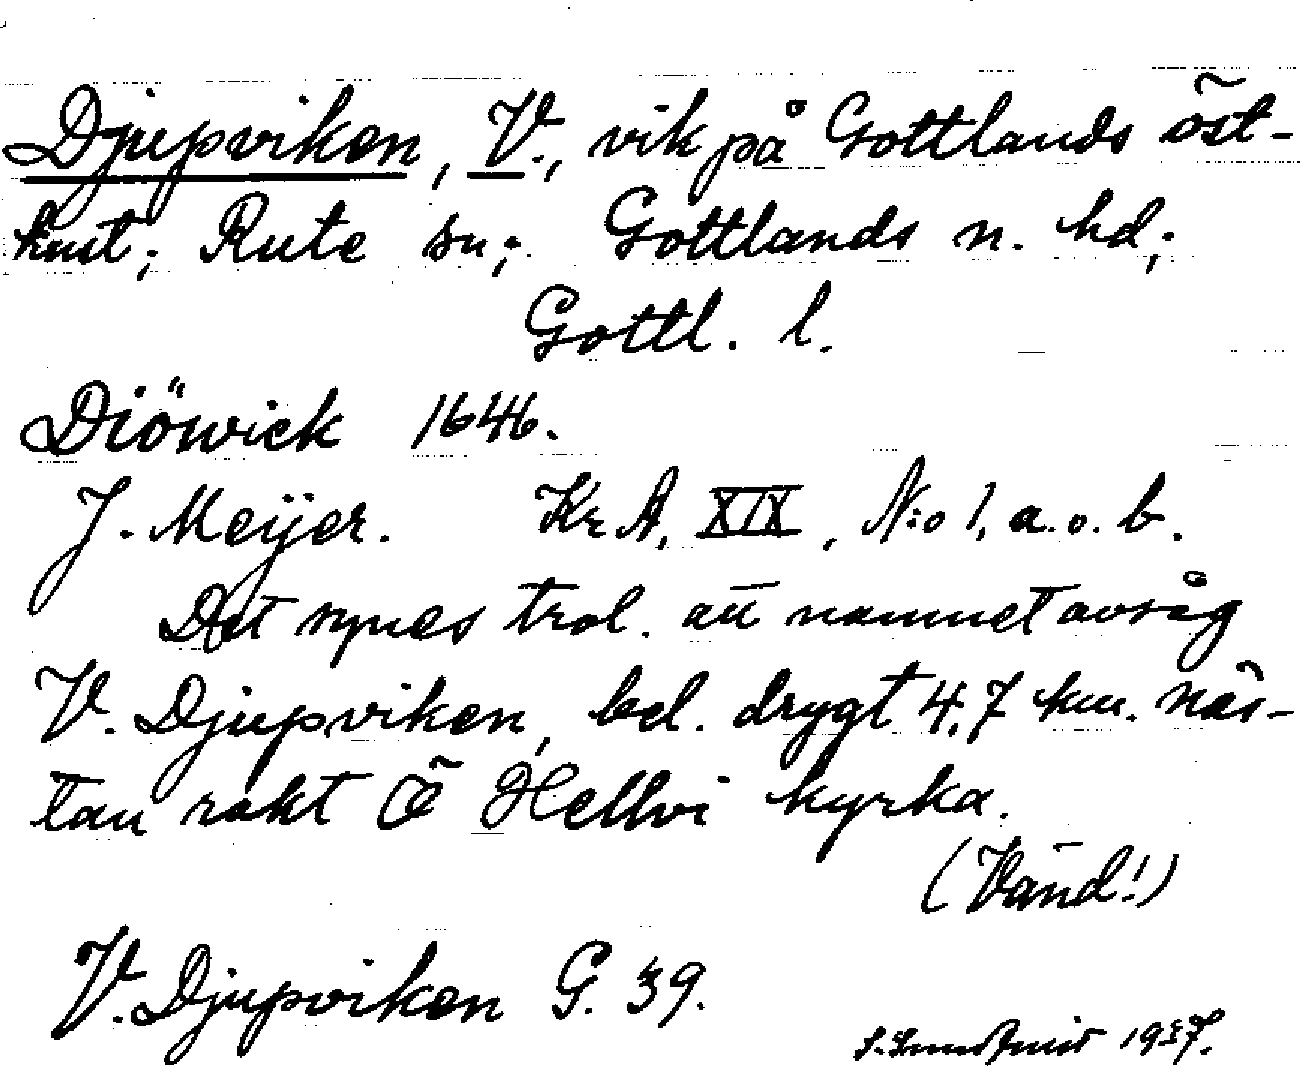 Djupviken, V., vik på Gottlands öst-
kust; Rute sn; Gottlands n. hd;
Gottl. l.
Diöwick 1646.
J. Meijer. Kr A, XIX, N:o 1, a. o. b.
Det synes trol. att namnet avsåg
V. Djupviken, bel. drygt 4,7 km. näs-
tan rakt Ö Hellvi kyrka.
(Vänd!)
V. Djupviken G. 39.
1937.